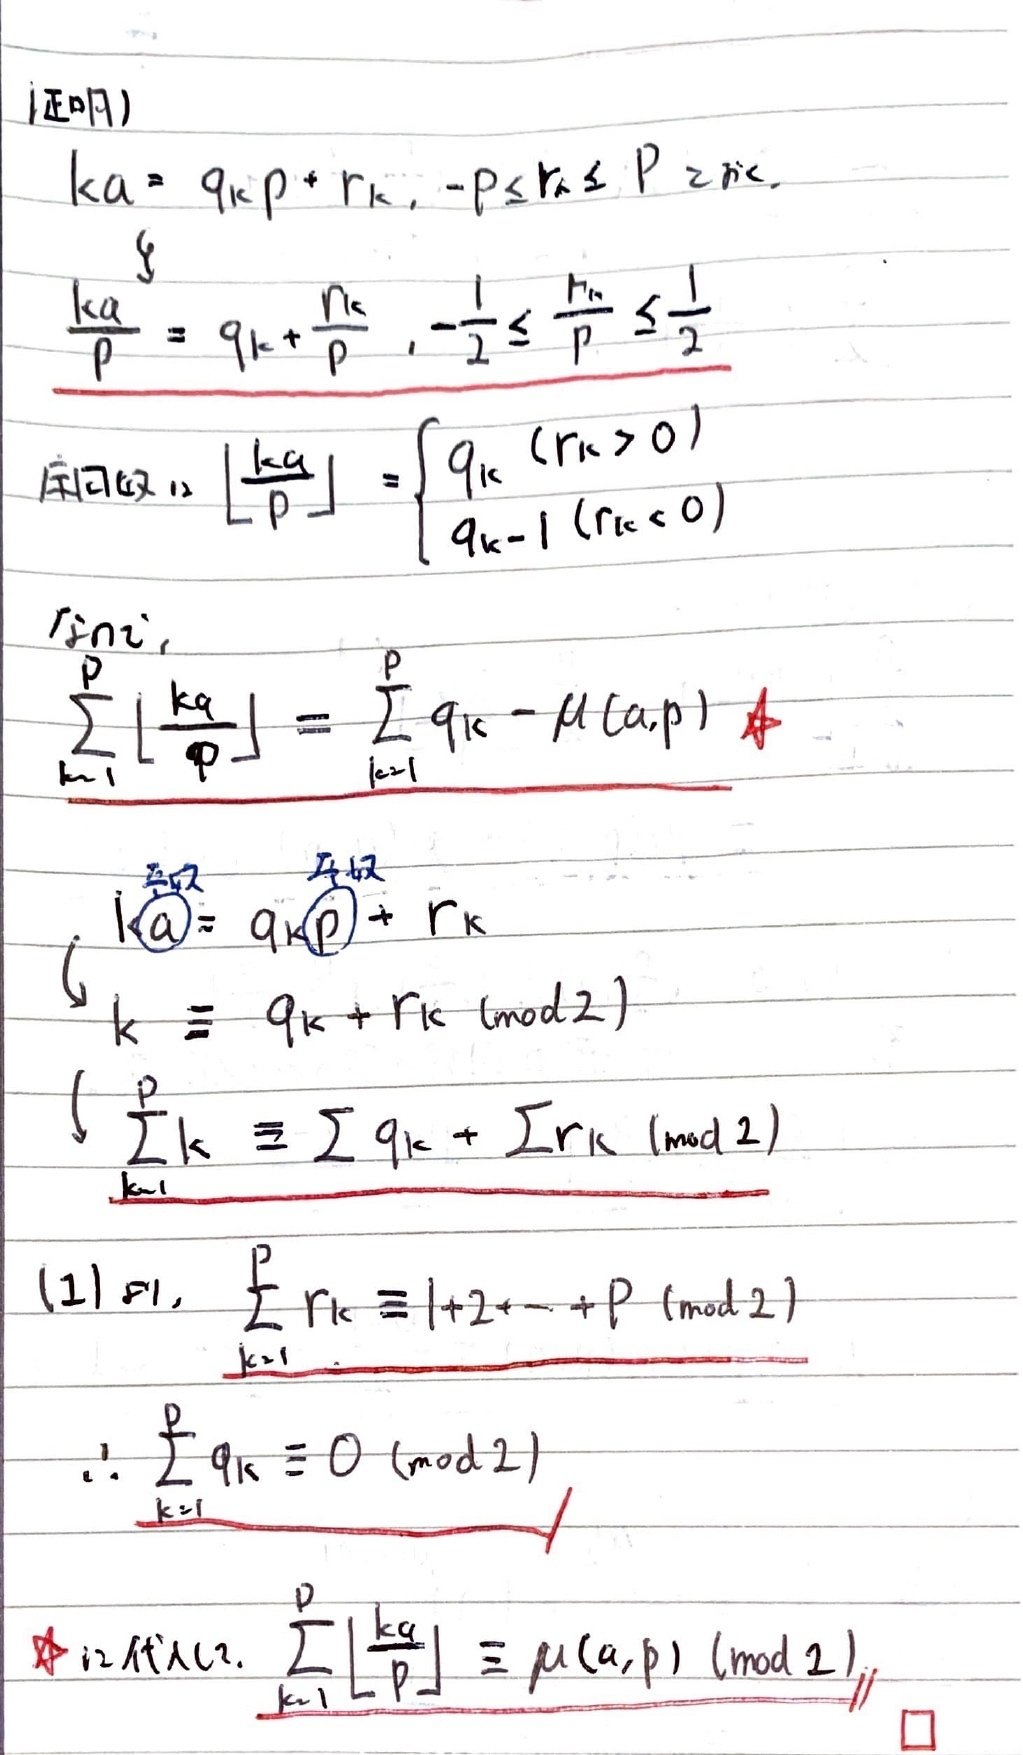 (証明)
ka = q_k p + r_k, -P ≤ r_k ≤ P と書く.
ka/p = q_k + r_k/p, -1/2 ≤ r_k/p ≤ 1/2
床関数は ⌊ka/p⌋ = { q_k (r_k > 0)
q_k - 1 (r_k < 0)
なので,
∑_{k=1}^{P} ⌊ka/p⌋ = ∑_{k=1}^{P} q_k - μ(a,p) ☆
奇数 奇数
ka = q_k p + r_k
k ≡ q_k + r_k (mod 2)
∑_{k=1}^{P} k ≡ ∑ q_k + ∑ r_k (mod 2)
(1) より, ∑_{k=1}^{P} r_k ≡ 1+2+…+P (mod 2)
∴ ∑_{k=1}^{P} q_k ≡ 0 (mod 2)
☆ に代入して. ∑_{k=1}^{P} ⌊ka/p⌋ ≡ μ(a,p) (mod 2) //
□